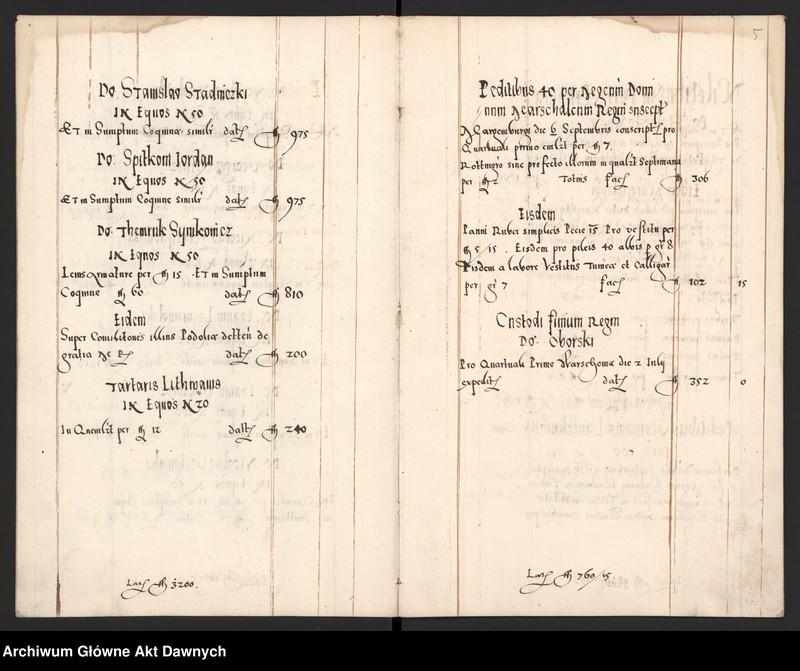 Do Stanislao Stadnizki
IN Equos N 50
Et in Sumptum Coquinæ simili dat fl 975
Do: Spitkoni Iordan
IN Equos N 50
Et in Sumptum Coquine simili dat fl 975
Do: Themriuk Symkowicz
IN Equos N 50
Levis Armature per fl 15 . Et in Sumptum
Coquine fl 60 dat fl 810
Eidem
Super Comilitones illius Podoliæ
gratia dat fl 200
Tartaris Lithwanis
IN Equos N 20
In per fl 12 dat fl 240
Lat fl 3200.
5
Peditibus 40 per Regem Domi
num Marschalcum Regni suscept
die 6 Septembris conscript pro
Quartuali primo per fl 7.
sine profecto illorum in Septimana
per fl 2 Totius facit fl 306
Eisdem
Panni Rubei simplicis Pecie 15 Pro vestitu per
fl 5/15 . Eisdem pro pileis 40 albis p gr 8
Eisdem a labore Vestitus Tunicæ et Calligar
per gr 7 facit fl 102 15
Custodi finium Regni
Do: Oborski
Pro Quartuali Primo Warschowiæ die 2 Iulij
expedit dat fl 352 0
Lat fl 760/15.
Archiwum Główne Akt Dawnych